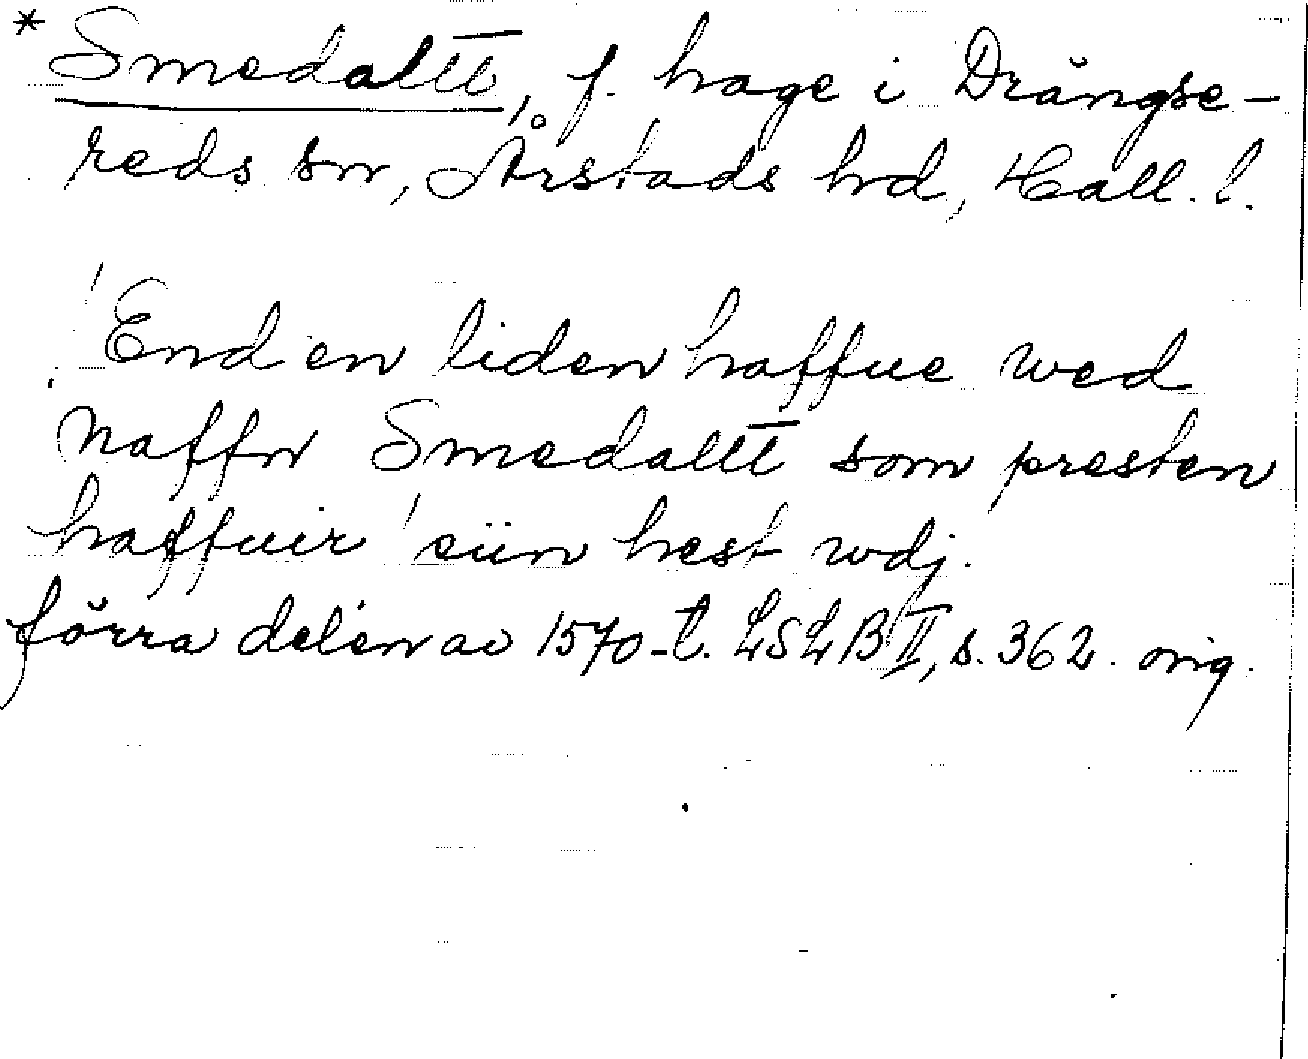 * Smedaltt, f. hage i Drängse-
reds sn, Årstads hd, Hall. l.
'End en liden haffue wed
Naffn Smedaltt som presten
haffuir' siin hest wdj.
förra delen av 1570-t. LSLB II, s. 362. orig.